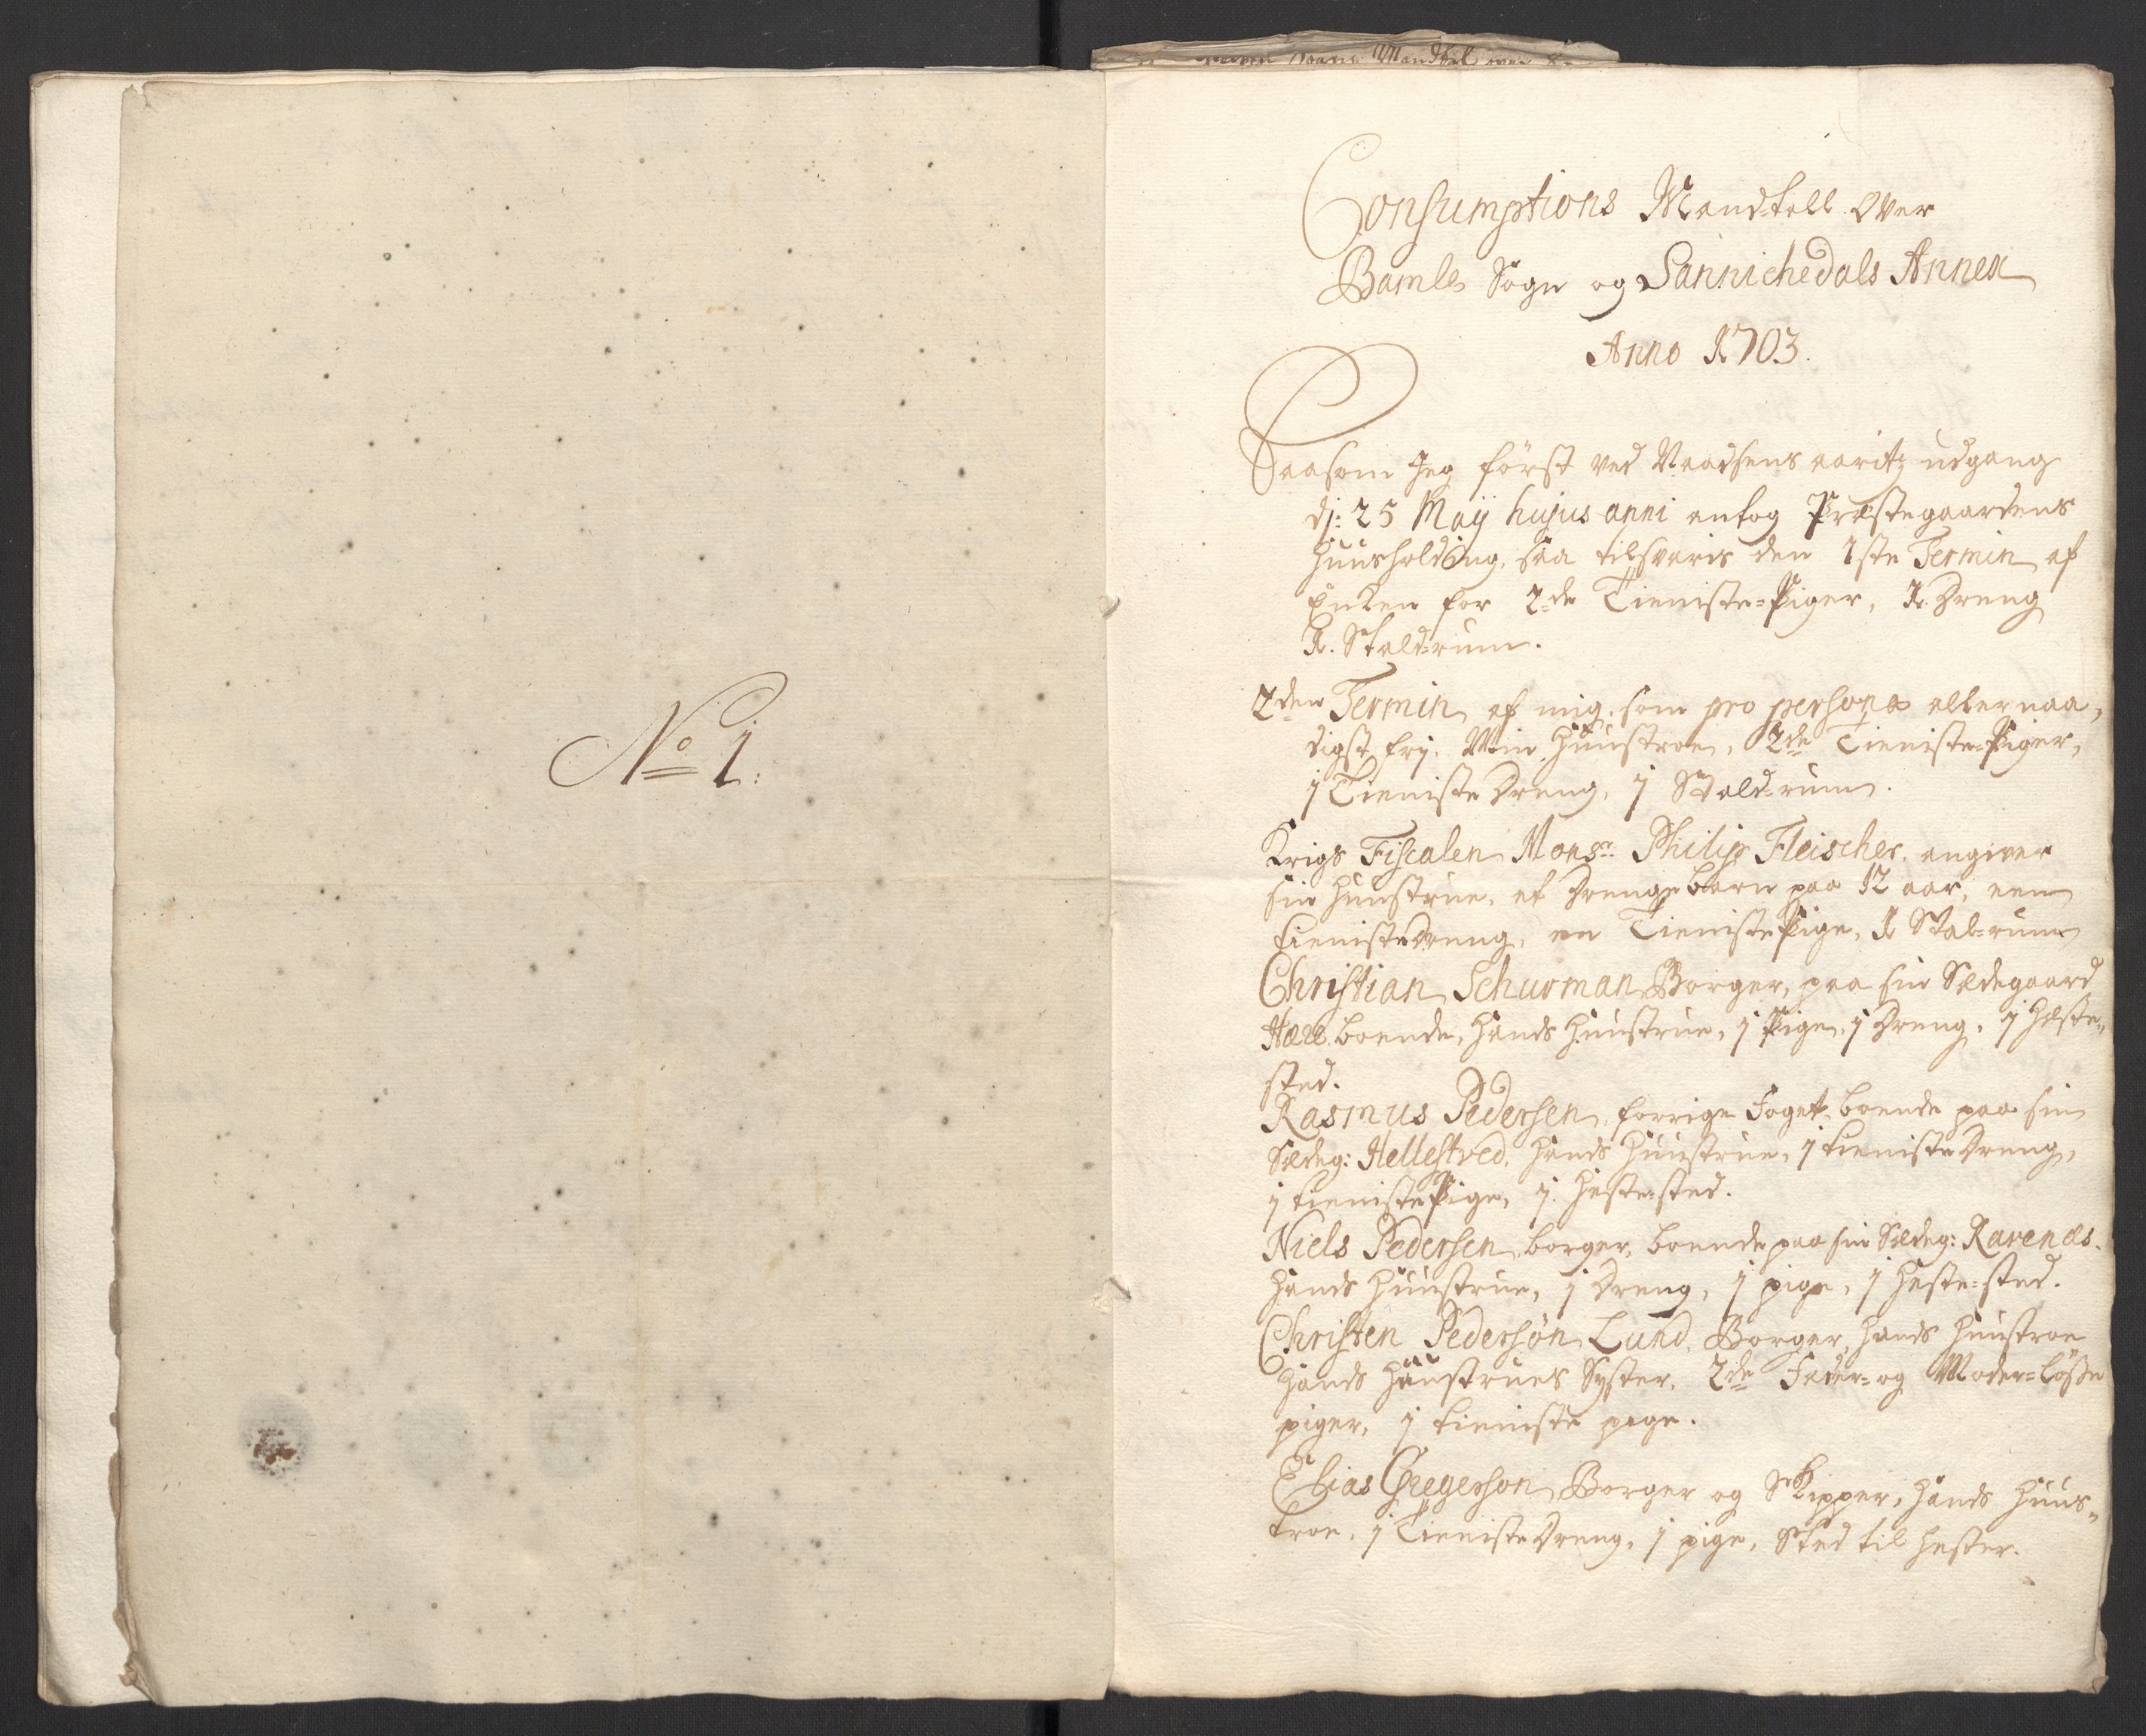 No 1.
Consumptions Mandtall over
Bamle Sogn og Sannichedals Annex
Anno 1703.
Saasom Jeg först ved Naadsens aaritz udgang
d: 25 Maij hujus anni antog Præstegaardens
Huusholding, saa tilsvaris den 1ste Termin af
Enken for 2de Tieniste-Piger, 1. Dreng
1. Staldrum.
2den Termin af mig, som pro persona allernaa,,
digst fri. Min Huustroe, 2de Tieniste-Piger,
1 Tieniste Dreng, 1 Stald-rum.
Krigs Fiscalen Monsr. Philip Fleischer, angiver
sin Huustrue, et Drengebarn paa 12 aar, een
tienisteDreng, en TienistePige, 1 Stal-rum
Christian Schurman Borger, paa sin Sædegaard
boende, Hands Huustrue, 1 Pige, 1 Dreng, 1 Heste,,
sted.
Rasmus Pedersen, forrige Foget, boende paa sin
Sædeg: Hellestved, Hands Huustrue, 1 tienisteDreng,
1 tienistePige, 1. Heste-sted.
Niels Pedersen, borger, boende paa sin Sædeg: Ravenæs.
Hands Huustrue, 1 Dreng, 1 pige, 1 Heste-sted.
Christen Pedersøn Lund, Borger, Hands Huustroe
Hands Huustrues Syster, 2de Fader- og Moder-løse
piger, 1 tieniste pige.
Elias Gregerson Borger og Skipper, Hands Huus,,
troe, 1 TienisteDreng, 1 pige, Sted til Hester.